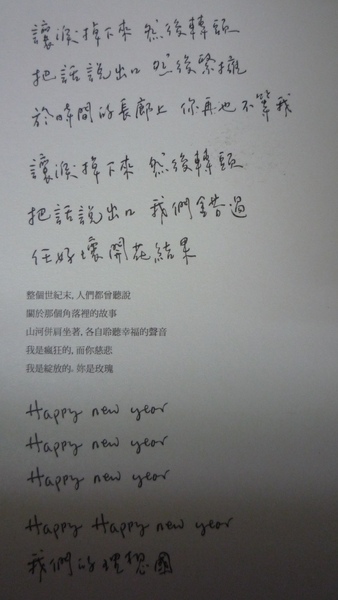 讓淚掉下來 然後轉頭
把話說出口 然後緊擁
於時間的長廊上 你再也不等我
讓淚掉下來 然後轉頭
把話說出口 我們含苦過
任好壞開花結果
整個世紀末，人們都曾聽說
關於那個角落裡的故事
山河併肩坐著，各自聆聽幸福的聲音
我是瘋狂的，而你慈悲
我是綻放的。妳是玫瑰
Happy new year
Happy new year
Happy new year
Happy Happy new year
我們的理想國